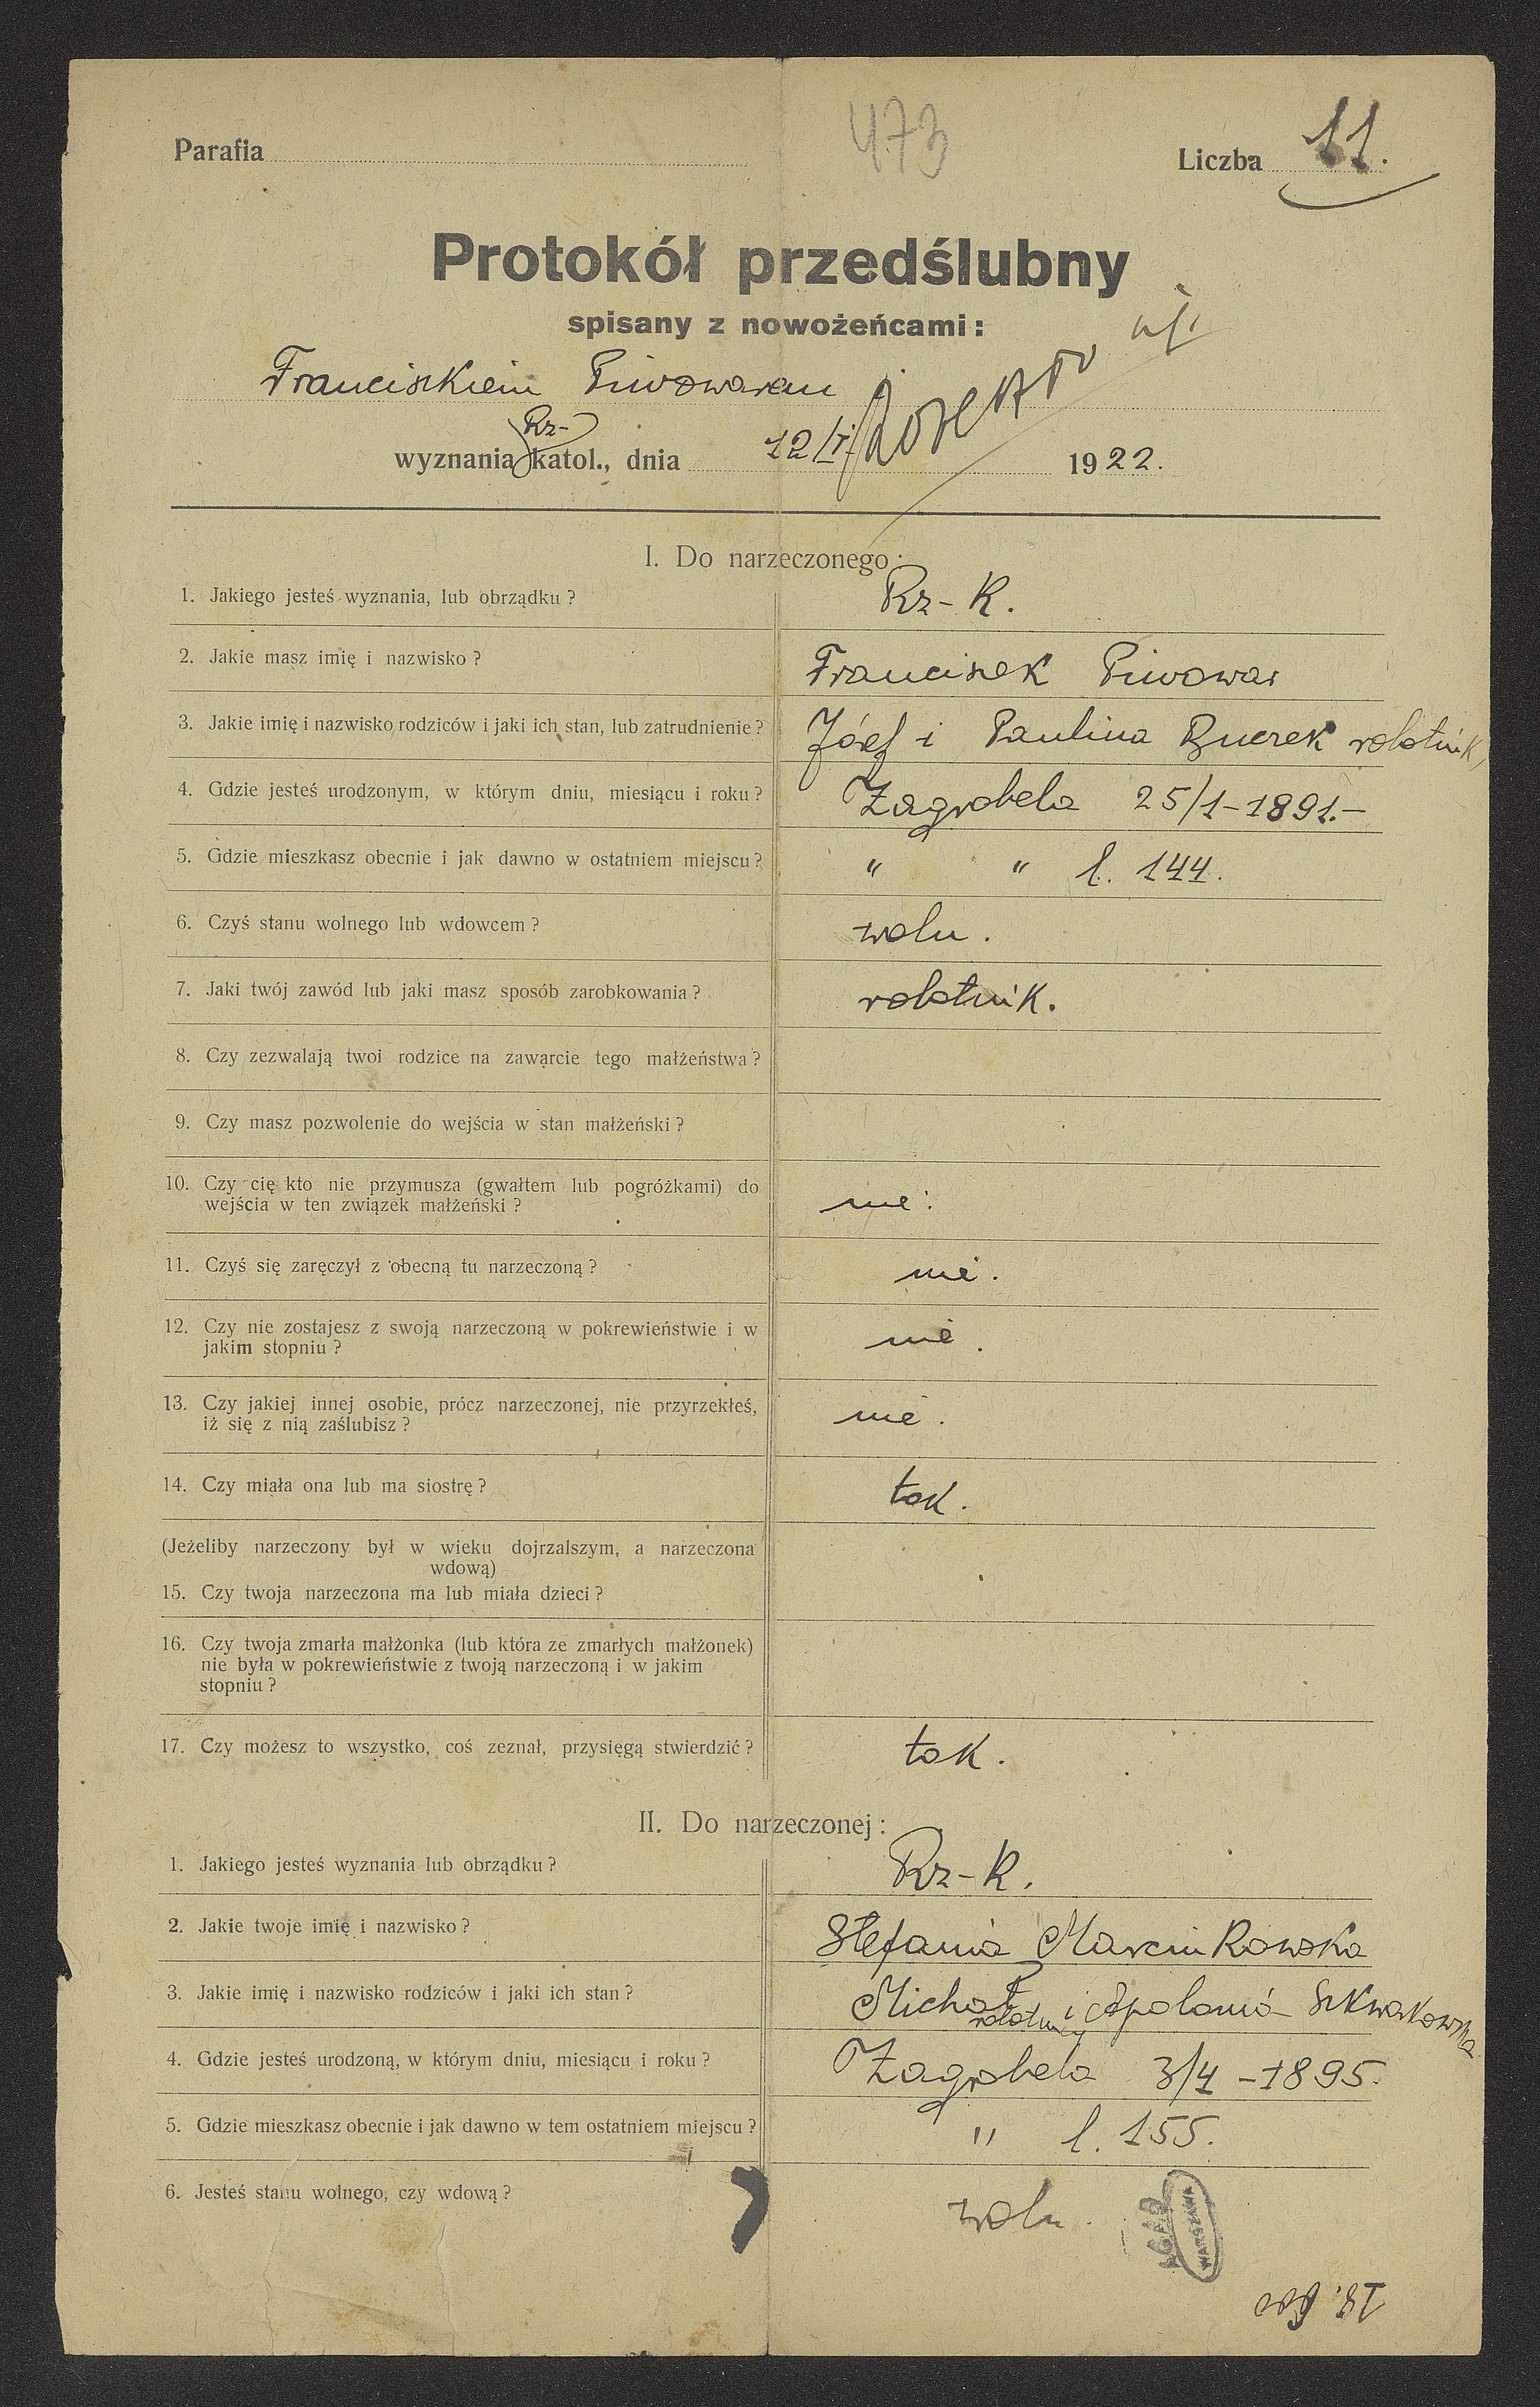 473
Parafia
Liczba 11.
Protokół przedślubny
spisany z nowożeńcami:
Franciszkiem Piwowarem
Rz-
wyznania katol., dnia 12/I 1922.
I. Do narzeczonego:
1. Jakiego jesteś wyznania, lub obrządku? Rz-K.
2. Jakie masz imię i nazwisko? Franciszek Piwowar
3. Jakie imię i nazwisko rodziców i jaki ich stan, lub zatrudnienie? Józef i Paulina robotnik,
4. Gdzie jesteś urodzonym, w którym dniu, miesiącu i roku? Zagrobela 25/1-1891.-
5. Gdzie mieszkasz obecnie i jak dawno w ostatniem miejscu? " " l. 144.
6. Czyś stanu wolnego lub wdowcem? woln.
7. Jaki twój zawód lub jaki masz sposób zarobkowania? robotnik.
8. Czy zezwalają twoi rodzice na zawarcie tego małżeństwa?
9. Czy masz pozwolenie do wejścia w stan małżeński?
10. Czy cię kto nie przymusza (gwałtem lub pogróżkami) do
wejścia w ten związek małżeński? nie.
11. Czyś się zaręczył z obecną tu narzeczoną? nie.
12. Czy nie zostajesz z swoją narzeczoną w pokrewieństwie i w
jakim stopniu? nie.
13. Czy jakiej innej osobie, prócz narzeczonej, nie przyrzekłeś,
iż się z nią zaślubisz? nie.
14. Czy miała ona lub ma siostrę? tak.
(Jeżeliby narzeczony był w wieku dojrzalszym, a narzeczona
wdową)
15. Czy twoja narzeczona ma lub miała dzieci?
16. Czy twoja zmarła małżonka (lub która ze zmarłych małżonek)
nie była w pokrewieństwie z twoją narzeczoną i w jakim
stopniu?
17. Czy możesz to wszystko, coś zeznał, przysięgą stwierdzić? tak.
II. Do narzeczonej:
1. Jakiego jesteś wyznania lub obrządku? Rz-K.
2. Jakie twoje imię i nazwisko? Stefania Marcinkowska
3. Jakie imię i nazwisko rodziców i jaki ich stan? Michał i Apolonia Szkwarkowska
robotnicy
4. Gdzie jesteś urodzoną, w którym dniu, miesiącu i roku? Zagrobela 3/4-1895.
5. Gdzie mieszkasz obecnie i jak dawno w tem ostatniem miejscu? " l. 155.
6. Jesteś stanu wolnego, czy wdową? woln.
AGAD
WARSZAWA